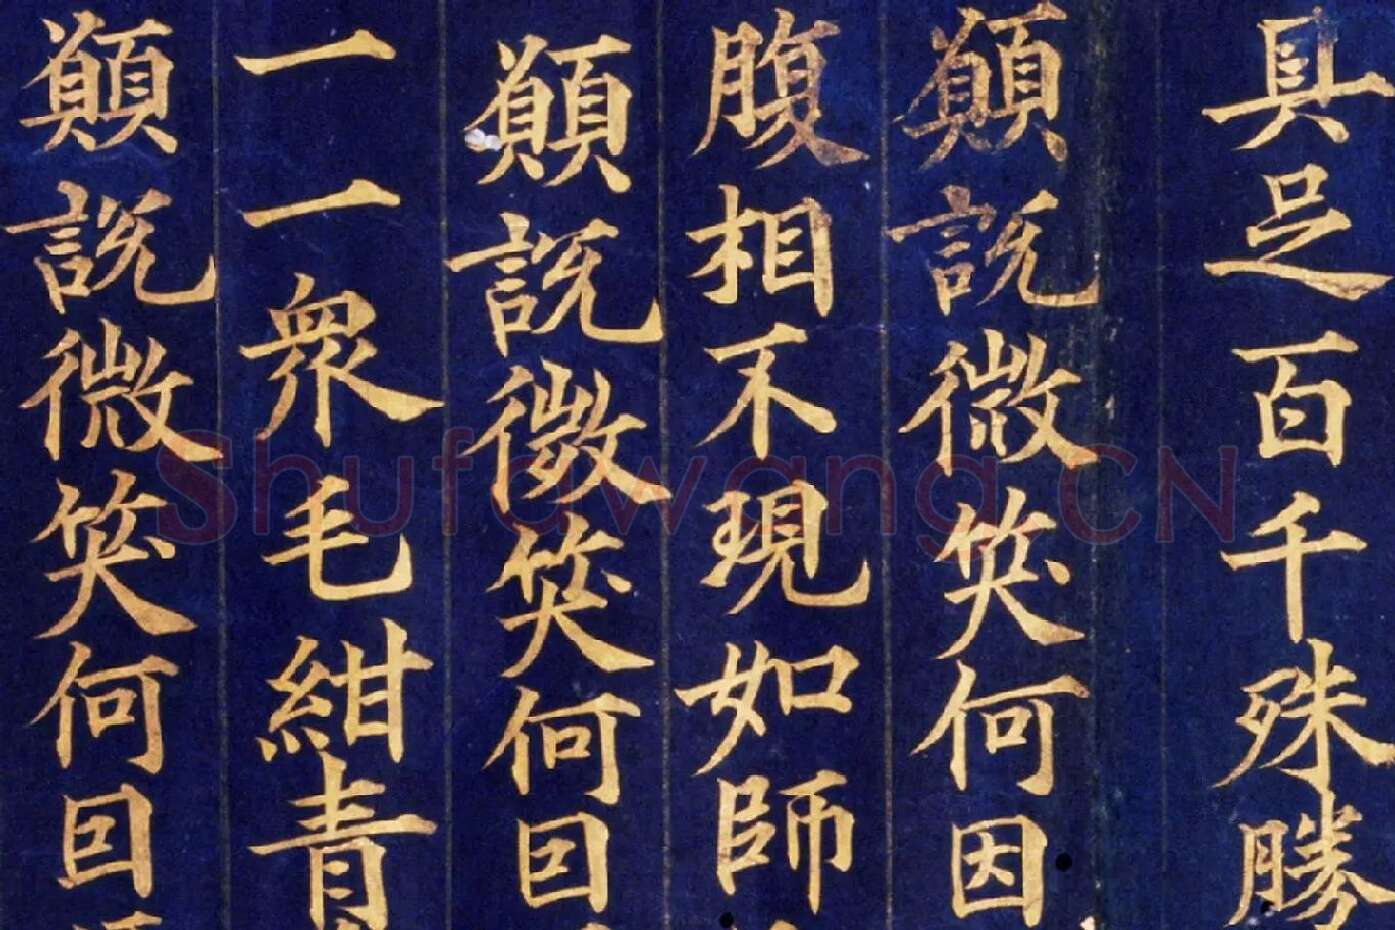 具足百千殊勝
顛説微笑何因
腹相不現如師
顛説微笑何回
一一衆毛紺青
顛説微笑何回
Shufawang.CN